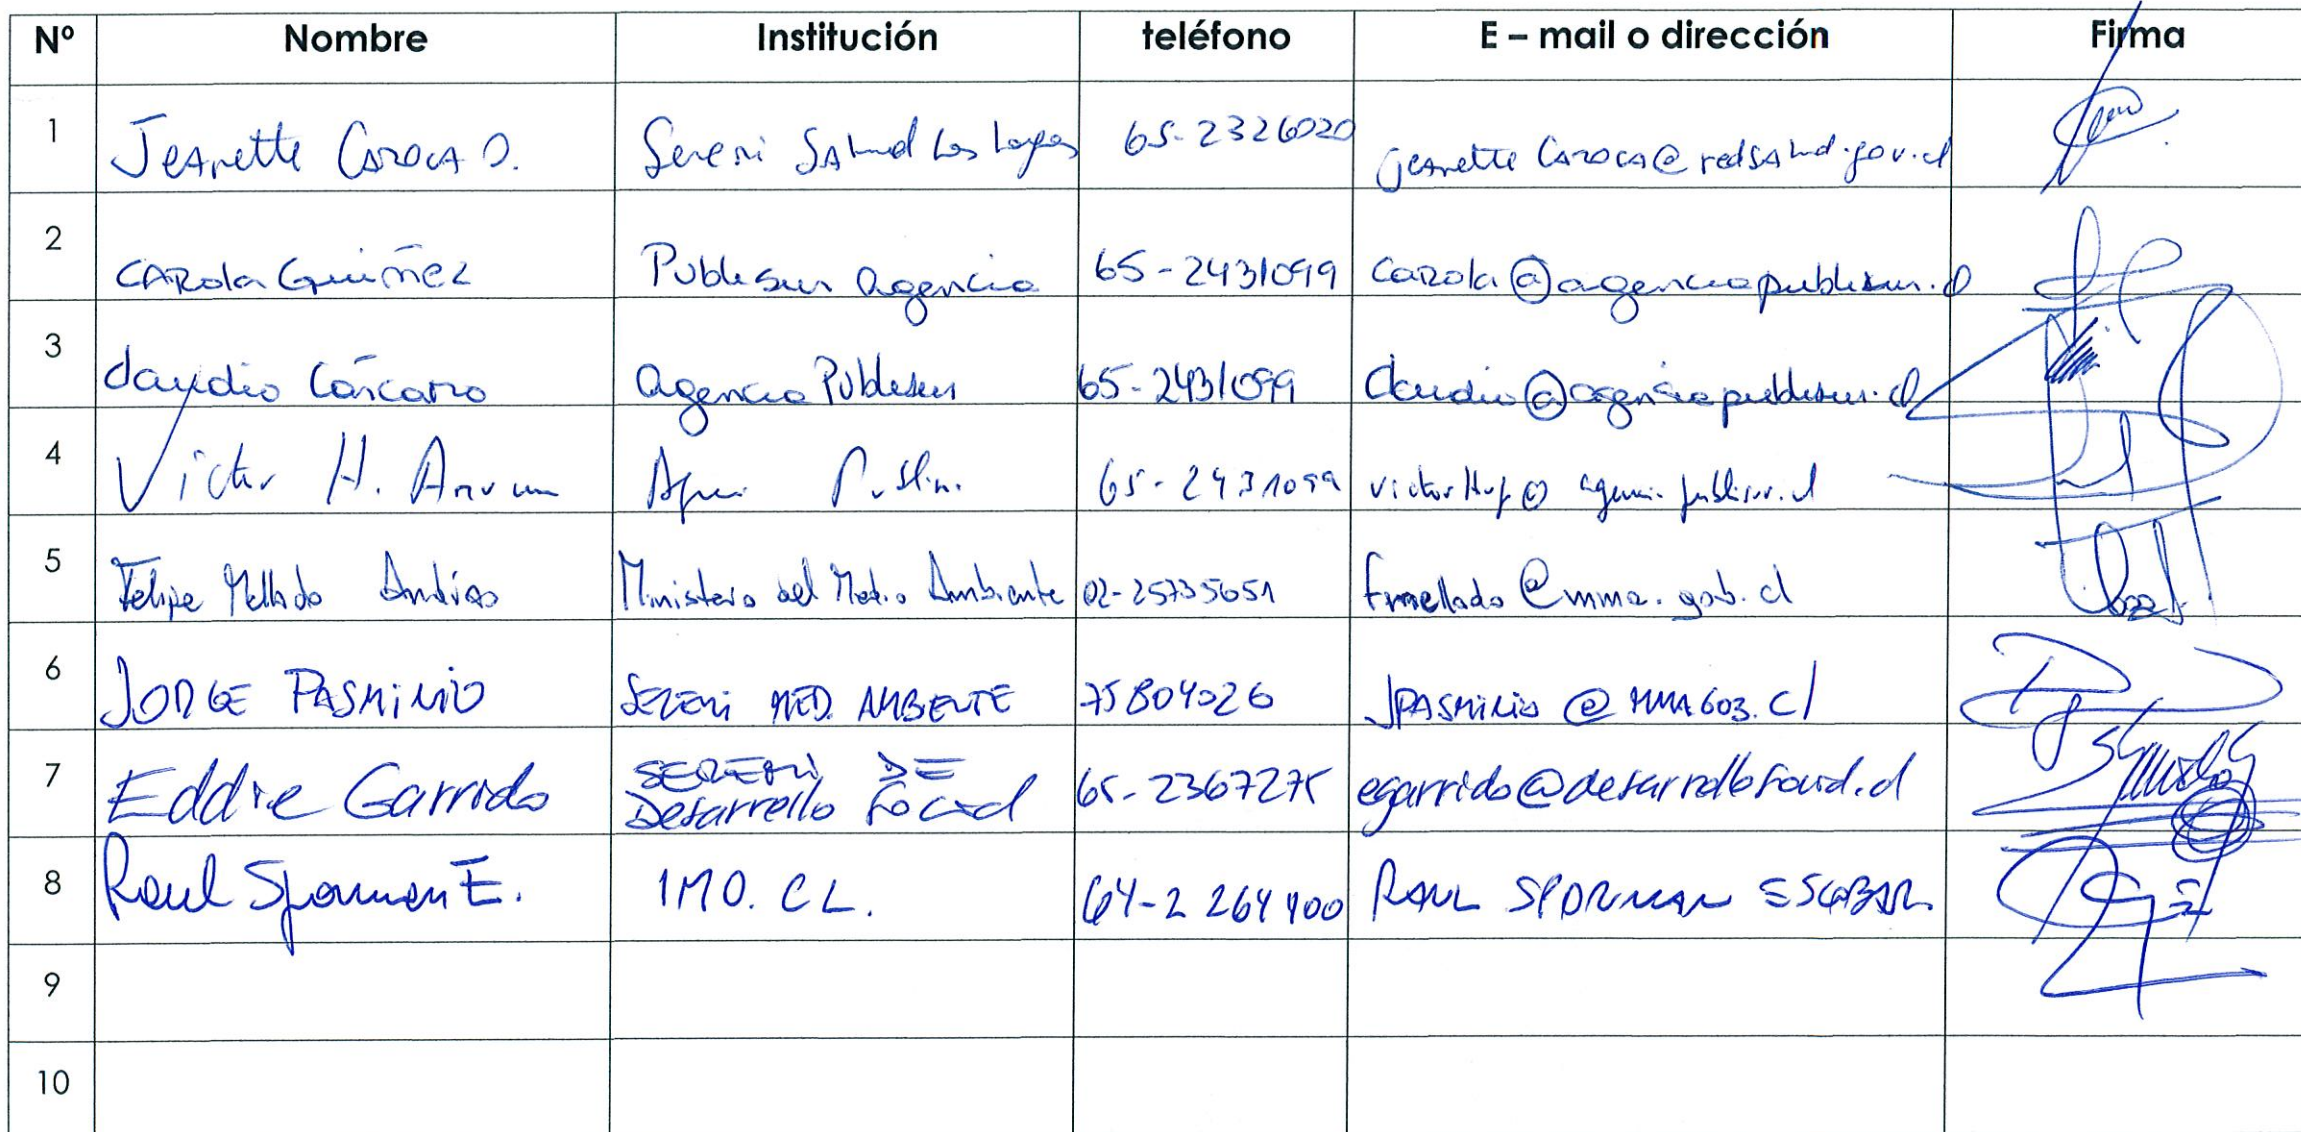 Nº Nombre Institución teléfono E – mail o dirección Firma
1 Jeanette Caroca O. Seremi Salud Los Lagos 65-2326020 Jeanette Caroca@redsalud.gov.cl
2 Carola Guiñez Publisur agencia 65-2431099 carola@agenciapublisur.cl
3 Claudio Cárcamo agencia Publisur 65-2431099 Claudio@agenciapublisur.cl
4 Victor H. 65-2431099
5 Felipe Mellado Ministerio del Medio Ambiente 02-25735651 fmellado@mma.gob.cl
6 JORGE PASMIÑIO SEREMI MED. AMBIENTE 75804026
7 Eddie Garrido SEREMI DE
Desarrollo Social 65-2367275 egarrido@desarrollosocial.cl
8 Raul Sporman E. IMO. CL. 64-2 264400 RAUL SPORMAN ESCOBAR
9
10